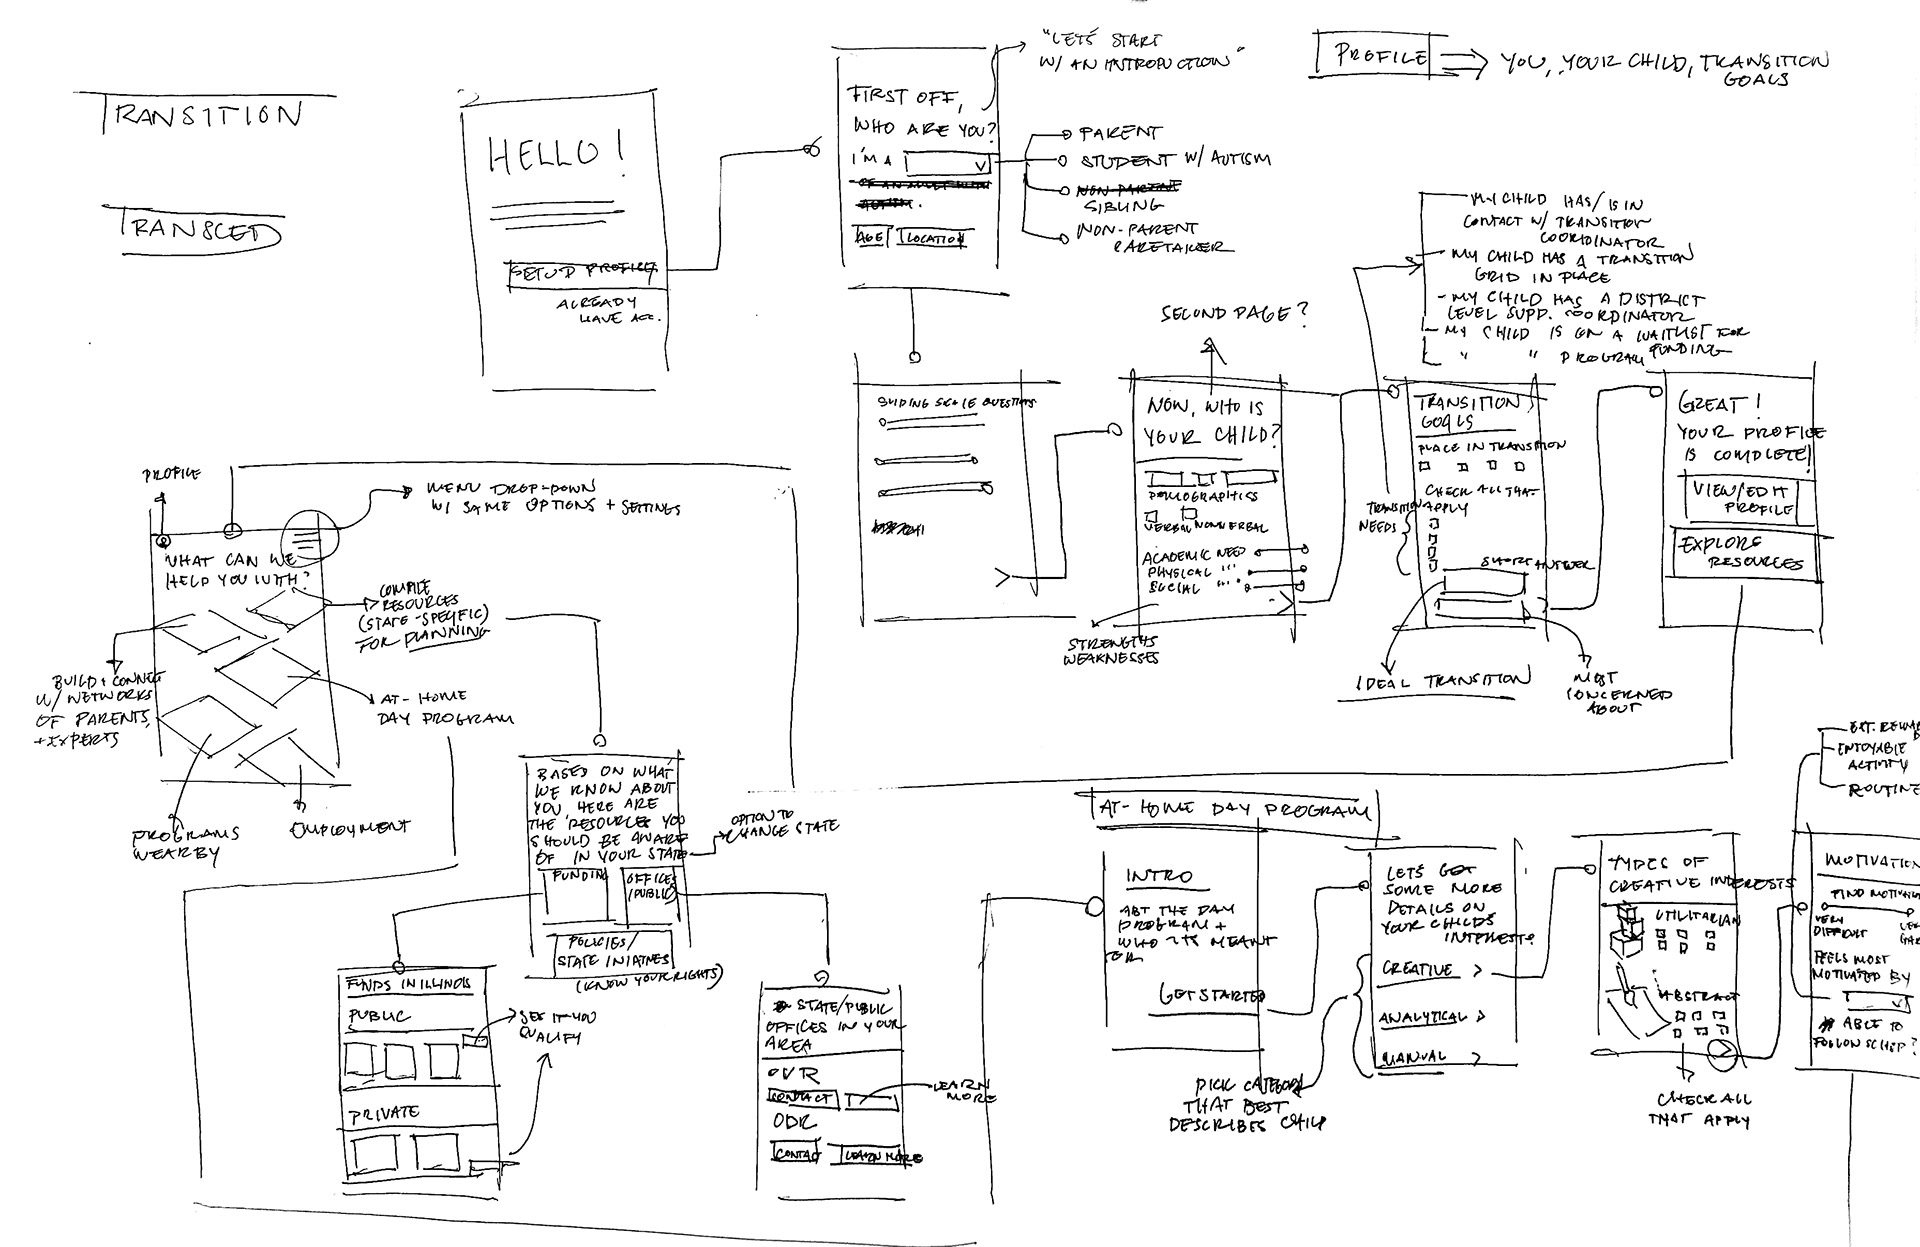 TRANSITION
TRANSCED
HELLO!
SETUP PROFILE
ALREADY
HAVE ACC.
"LET'S START
W/ AN INTRODUCTION"
FIRST OFF,
WHO ARE YOU?
I'M A
AGE LOCATION
PARENT
STUDENT W/ AUTISM
NON-PARENT
SIBLING
NON-PARENT
CARETAKER
PROFILE
YOU, YOUR CHILD, TRANSITION
GOALS
MY CHILD HAS/IS IN
CONTACT W/ TRANSITION
COORDINATOR
MY CHILD HAS A TRANSITION
GRID IN PLACE
- MY CHILD HAS A DISTRICT
LEVEL SUPP. COORDINATOR
- MY CHILD IS ON A WAITLIST FOR
FUNDING
" " PROGRAM
SLIDING SCALE QUESTIONS
SECOND PAGE?
NOW, WHO IS
YOUR CHILD?
DEMOGRAPHICS
VERBAL NONVERBAL
ACADEMIC NEED
PHYSICAL "
SOCIAL "
STRENGTHS
WEAKNESSES
TRANSITION
GOALS
PLACE IN TRANSITION
CHECK ALL THAT
APPLY
TRANSITION
NEEDS
SHORT ANSWER
IDEAL TRANSITION
MOST
CONCERNED
ABOUT
GREAT!
YOUR PROFILE
IS COMPLETE!
VIEW/EDIT
PROFILE
EXPLORE
RESOURCES
PROFILE
MENU DROP-DOWN
W/ SAME OPTIONS + SETTINGS
WHAT CAN WE
HELP YOU WITH?
COMPILE
RESOURCES
(STATE-SPECIFIC)
FOR PLANNING
BUILD + CONNECT
W/ NETWORKS
OF PARENTS,
+ EXPERTS
AT-HOME
DAY PROGRAM
PROGRAMS
NEARBY
EMPLOYMENT
BASED ON WHAT
WE KNOW ABOUT
YOU HERE ARE
THE RESOURCES YOU
SHOULD BE AWARE
OF IN YOUR STATE
OPTION TO
CHANGE STATE
FUNDING
OFFICES
(PUBLIC)
POLICIES/
STATE INIATIVES
(KNOW YOUR RIGHTS)
FUNDS IN ILLINOIS
PUBLIC
SEE IF YOU
QUALIFY
PRIVATE
STATE/PUBLIC
OFFICES IN YOUR
AREA
OVR
CONTACT
LEARN
MORE
ODR
CONTACT LEARN MORE
AT-HOME DAY PROGRAM
INTRO
ABT THE DAY
PROGRAM +
WHO ITS MEANT
FOR
GET STARTED
LETS GET
SOME MORE
DETAILS ON
YOUR CHILD'S
INTEREST?
CREATIVE >
ANALYTICAL >
MANUAL >
PICK CATEGORY
THAT BEST
DESCRIBES CHILD
TYPES OF
CREATIVE INTERESTS
UTILITARIAN
ABSTRACT
CHECK ALL
THAT APPLY
ENJOYABLE
ACTIVITY
ROUTINE
MOTIVATION
FIND MOTIVA
VERY
DIFFICULT
FEELS MOST
MOTIVATED BY
ABLE TO
FOLLOW SCHED?